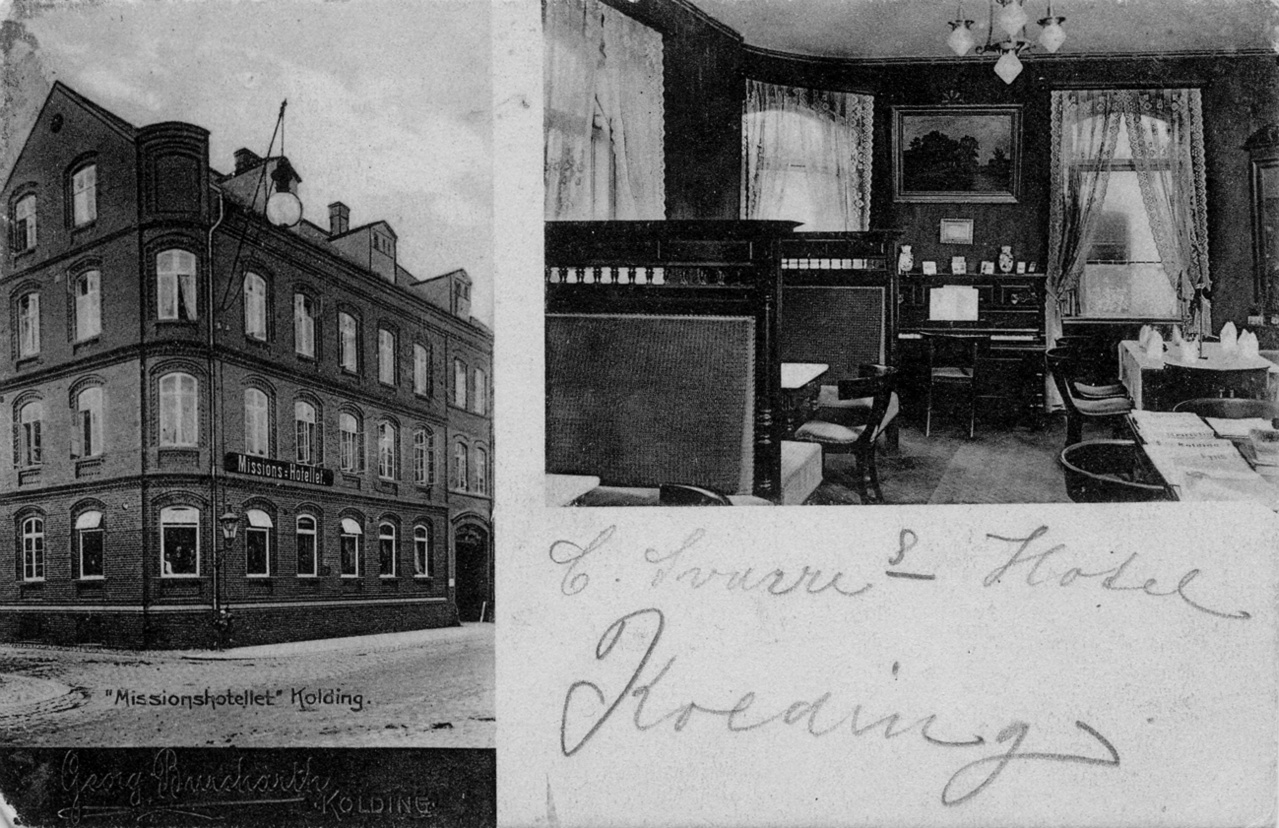 Missions=Hotellet.
"Missionshotellet" Kolding.
Georg Burcharth
KOLDING
C. Svarre s Hotel
Kolding